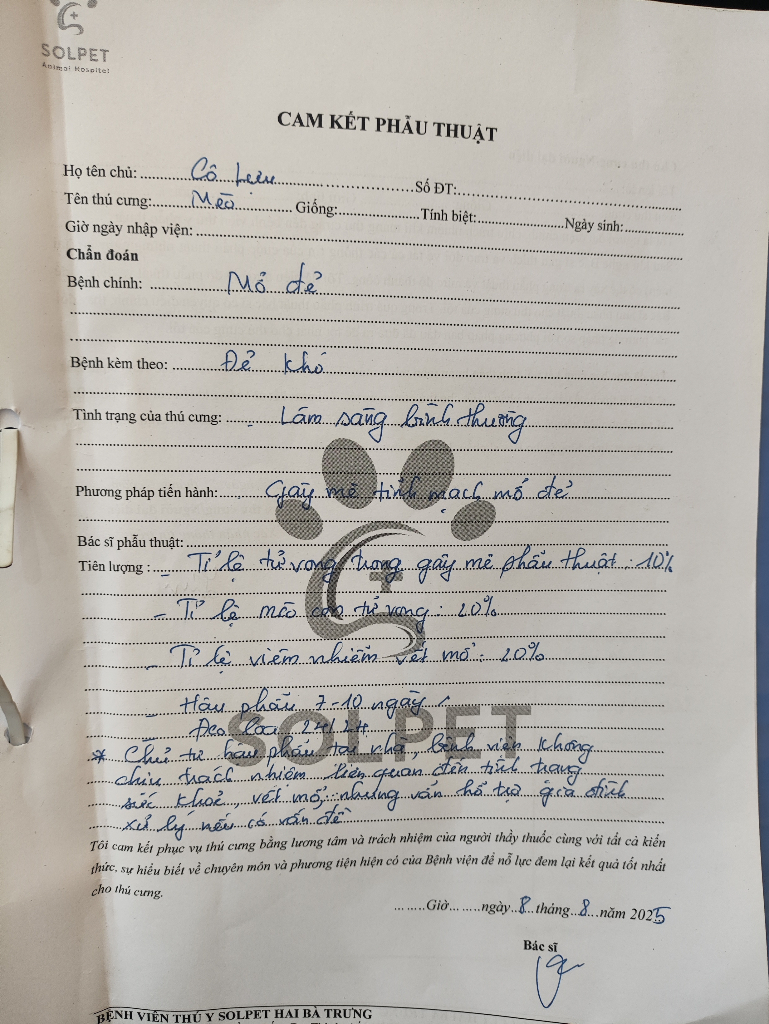 SOLPET
Animal Hospital
CAM KẾT PHẪU THUẬT
Họ tên chủ: Cô Lưu Số ĐT:
Tên thú cưng: Mèo Giống: Tính biệt: Ngày sinh:
Giờ ngày nhập viện:
Chẩn đoán
Bệnh chính: Mổ đẻ
Bệnh kèm theo: Đẻ khó
Tình trạng của thú cưng: Lâm sàng bình thường
Phương pháp tiến hành: Gây mê tĩnh mạch mổ đẻ
Bác sĩ phẫu thuật:
Tiên lượng : - Tỉ lệ tử vong trong gây mê phẫu thuật : 10%
- Tỉ lệ mèo con tử vong : 20%
- Tỉ lệ viêm nhiễm vết mổ : 20%
- Hậu phẫu 7-10 ngày
Đeo loa 24/24
SOLPET
* Chủ tự hậu phẫu tại nhà, bệnh viện không
chịu trách nhiệm liên quan đến tình trạng
sức khoẻ, vết mổ, nhưng vẫn hỗ trợ gia đình
xử lý nếu có vấn đề
Tôi cam kết phục vụ thú cưng bằng lương tâm và trách nhiệm của người thầy thuốc cùng với tất cả kiến
thức, sự hiểu biết về chuyên môn và phương tiện hiện có của Bệnh viện để nỗ lực đem lại kết quả tốt nhất
cho thú cưng.
Giờ ngày 8 tháng 8 năm 2025
Bác sĩ
BỆNH VIỆN THÚ Y SOLPET HAI BÀ TRƯNG